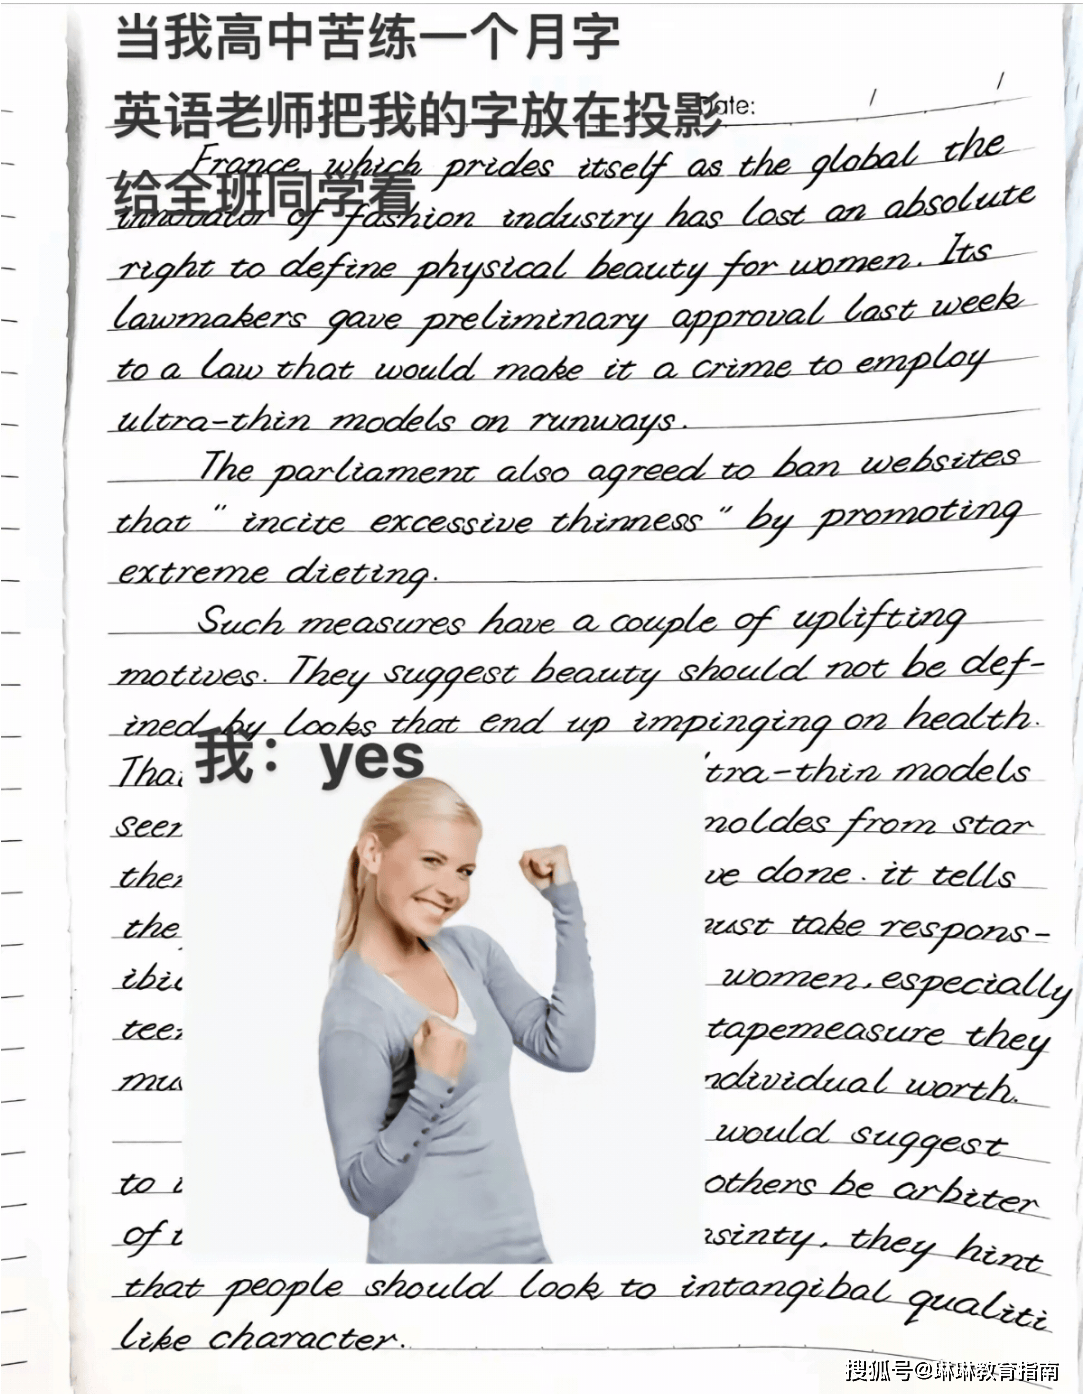 当我高中苦练一个月字
英语老师把我的字放在投影
Date:
给全班同学看
France, which prides itself as the global the
innovator of fashion industry has lost an absolute
right to define physical beauty for women. Its
lawmakers gave preliminary approval last week
to a law that would make it a crime to employ
ultra-thin models on runways.
The parliament also agreed to ban websites
that " incite excessive thinness " by promoting
extreme dieting.
Such measures have a couple of uplifting
motives. They suggest beauty should not be def-
ined by looks that end up impinging on health.
我：yes
tra-thin models
moldes from star
ve done. it tells
the
must take respons-
women, especially
tapemeasure they
ndividual worth.
would suggest
to
others be arbiter
of
nsinty, they hint
that people should look to intangibal qualiti
like character.
搜狐号@琳琳教育指南